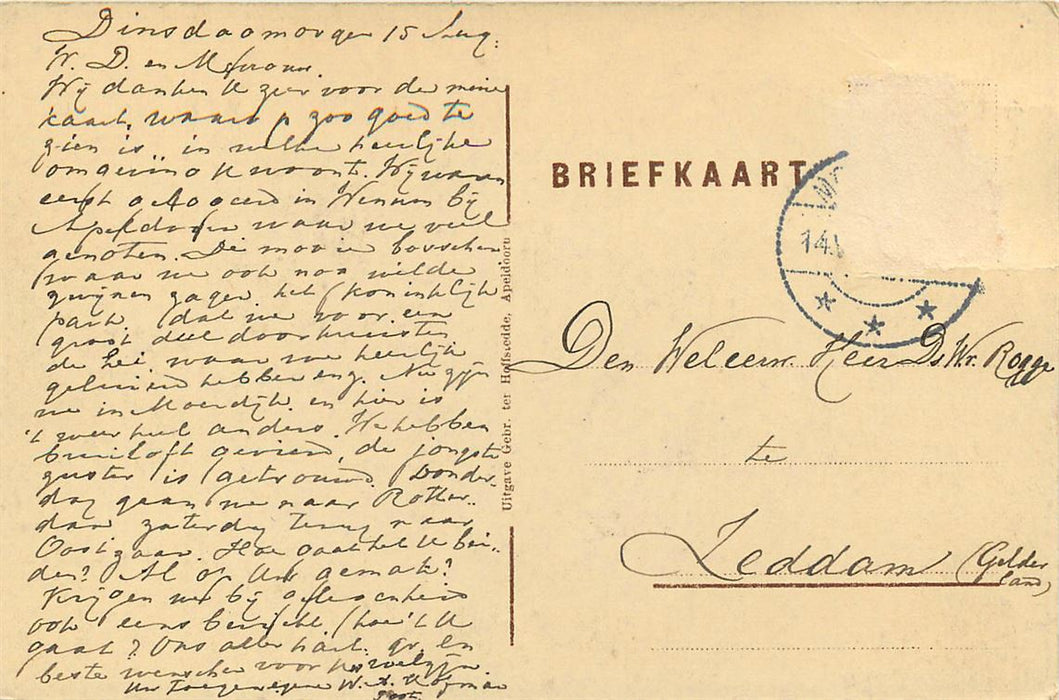 Dinsdagmorgen 15 Aug.
W. D. en Mevrouw.
Wij danken U zeer voor de mooie
kaart, waarop zoo goed te
zien is in welke heerlijke
omgeving U woont. Wij waren
eerst gelogeerd in Wenum bij
Apeldoorn waar we veel
genoten. De mooie bosschen
waar we ook nog wilde
zwijnen zagen, het Koninklijk
park, dat we voor een
groot deel doorkruisten
de hei, waar we heerlijk
geluierd hebben enz. Nu zijn
we in Moerdijk en hier is
't weer heel anders. We hebben
bruiloft gevierd, de jongste
zuster is getrouwd. Donder-
dag gaan we naar Rotter-
dam zaterdag terug naar
Oostzaan. Hoe gaat het U bei-
den? Al op Uw gemak?
Krijgen we bij gelegenheid
ook eens bericht, hoe 't U
gaat? Ons aller hart. gr. En
beste wenschen voor Uw welzijn
Uw toegenegene W. A.
Uitgave Gebr. ter Hoffstedde, Apeldoorn
BRIEFKAART
14.
Den Weleerw. Heer Ds. W. Rogge
te
Zeddam (Gelder
land)